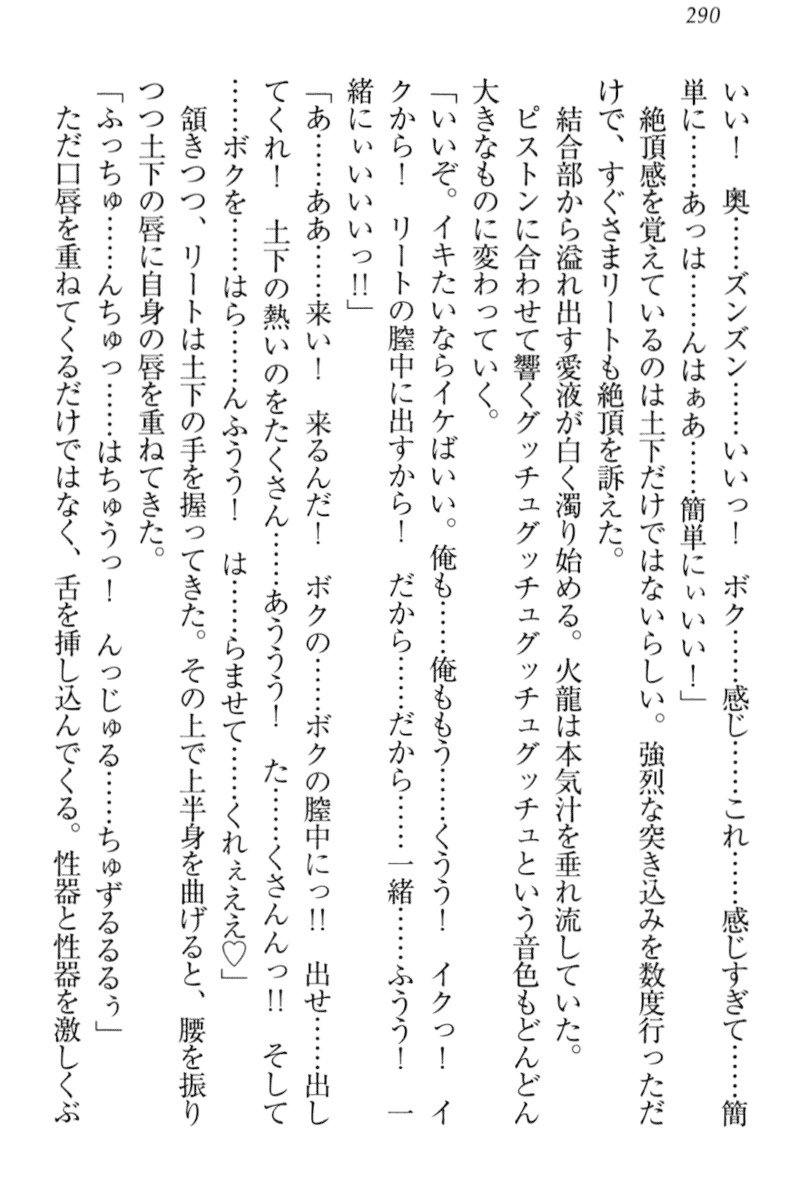 290
いい！　奥……ズンズン……いいっ！　ボク……感じ……これ……感じすぎて……簡
単に……あっは……んはぁあ……簡単にぃいい！」
　絶頂感を覚えているのは土下だけではないらしい。強烈な突き込みを数度行っただ
けで、すぐさまリートも絶頂を訴えた。
　結合部から溢れ出す愛液が白く濁り始める。火龍は本気汁を垂れ流していた。
　ピストンに合わせて響くグッチュグッチュグッチュグッチュという音色もどんどん
大きなものに変わっていく。
「いいぞ。イキたいならイケばいい。俺も……俺ももう……くうう！　イクっ！　イ
クから！　リートの膣中に出すから！　だから……だから……一緒……ふうう！　一
緒にぃいいいっ!!」
「あ……ああ……来い！　来るんだ！　ボクの……ボクの膣中にっ!!　出せ……出し
てくれ！　土下の熱いのをたくさん……あううう！　た……くさんんっ!!　そして
……ボクを……はら……んふうう！　は……らませて……くれぇええ♡」
　頷きつつ、リートは土下の手を握ってきた。その上で上半身を曲げると、腰を振り
つつ土下の唇に自身の唇を重ねてきた。
「ふっちゅ……んちゅっ……はちゅうっ！　んっじゅる……ちゅずるるるぅ」
　ただ口唇を重ねてくるだけではなく、舌を挿し込んでくる。性器と性器を激しくぶ